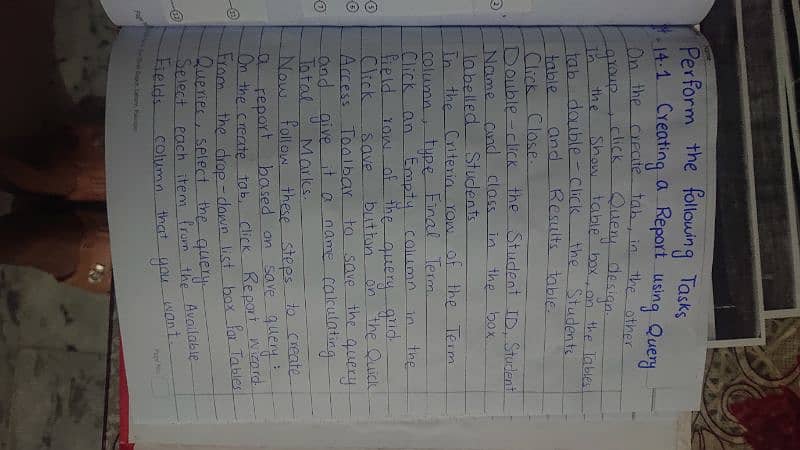 Perform the following Tasks
14.1 Creating a Report using Query
On the create tab, in the other
group, click Query design.
In the Show table box, on the Tables
tab double-click the Students
table and Results table
Click Close
Double-click the Student ID, Student
Name and class in the box
labelled Students
In the Criteria row of the Term
column, type Final Term
Click an Empty column in the
field row of the query grid
Click save button on the Quick
Access Toolbar to save the query
and give it a name calculating
Total Marks.
Now follow these steps to create
a report based on save query:
On the create tab, click Report wizard
From the drop-down list box for Tables
Queries, select the query
Select each item from the Available
Fields column that you want